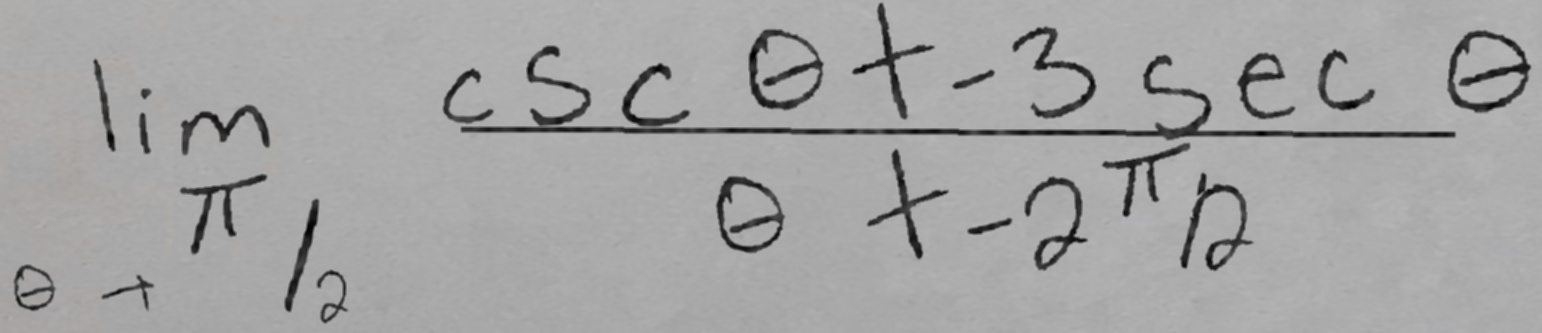 lim θ → π/2 csc θ + -3 sec θ / θ + -2 π/2